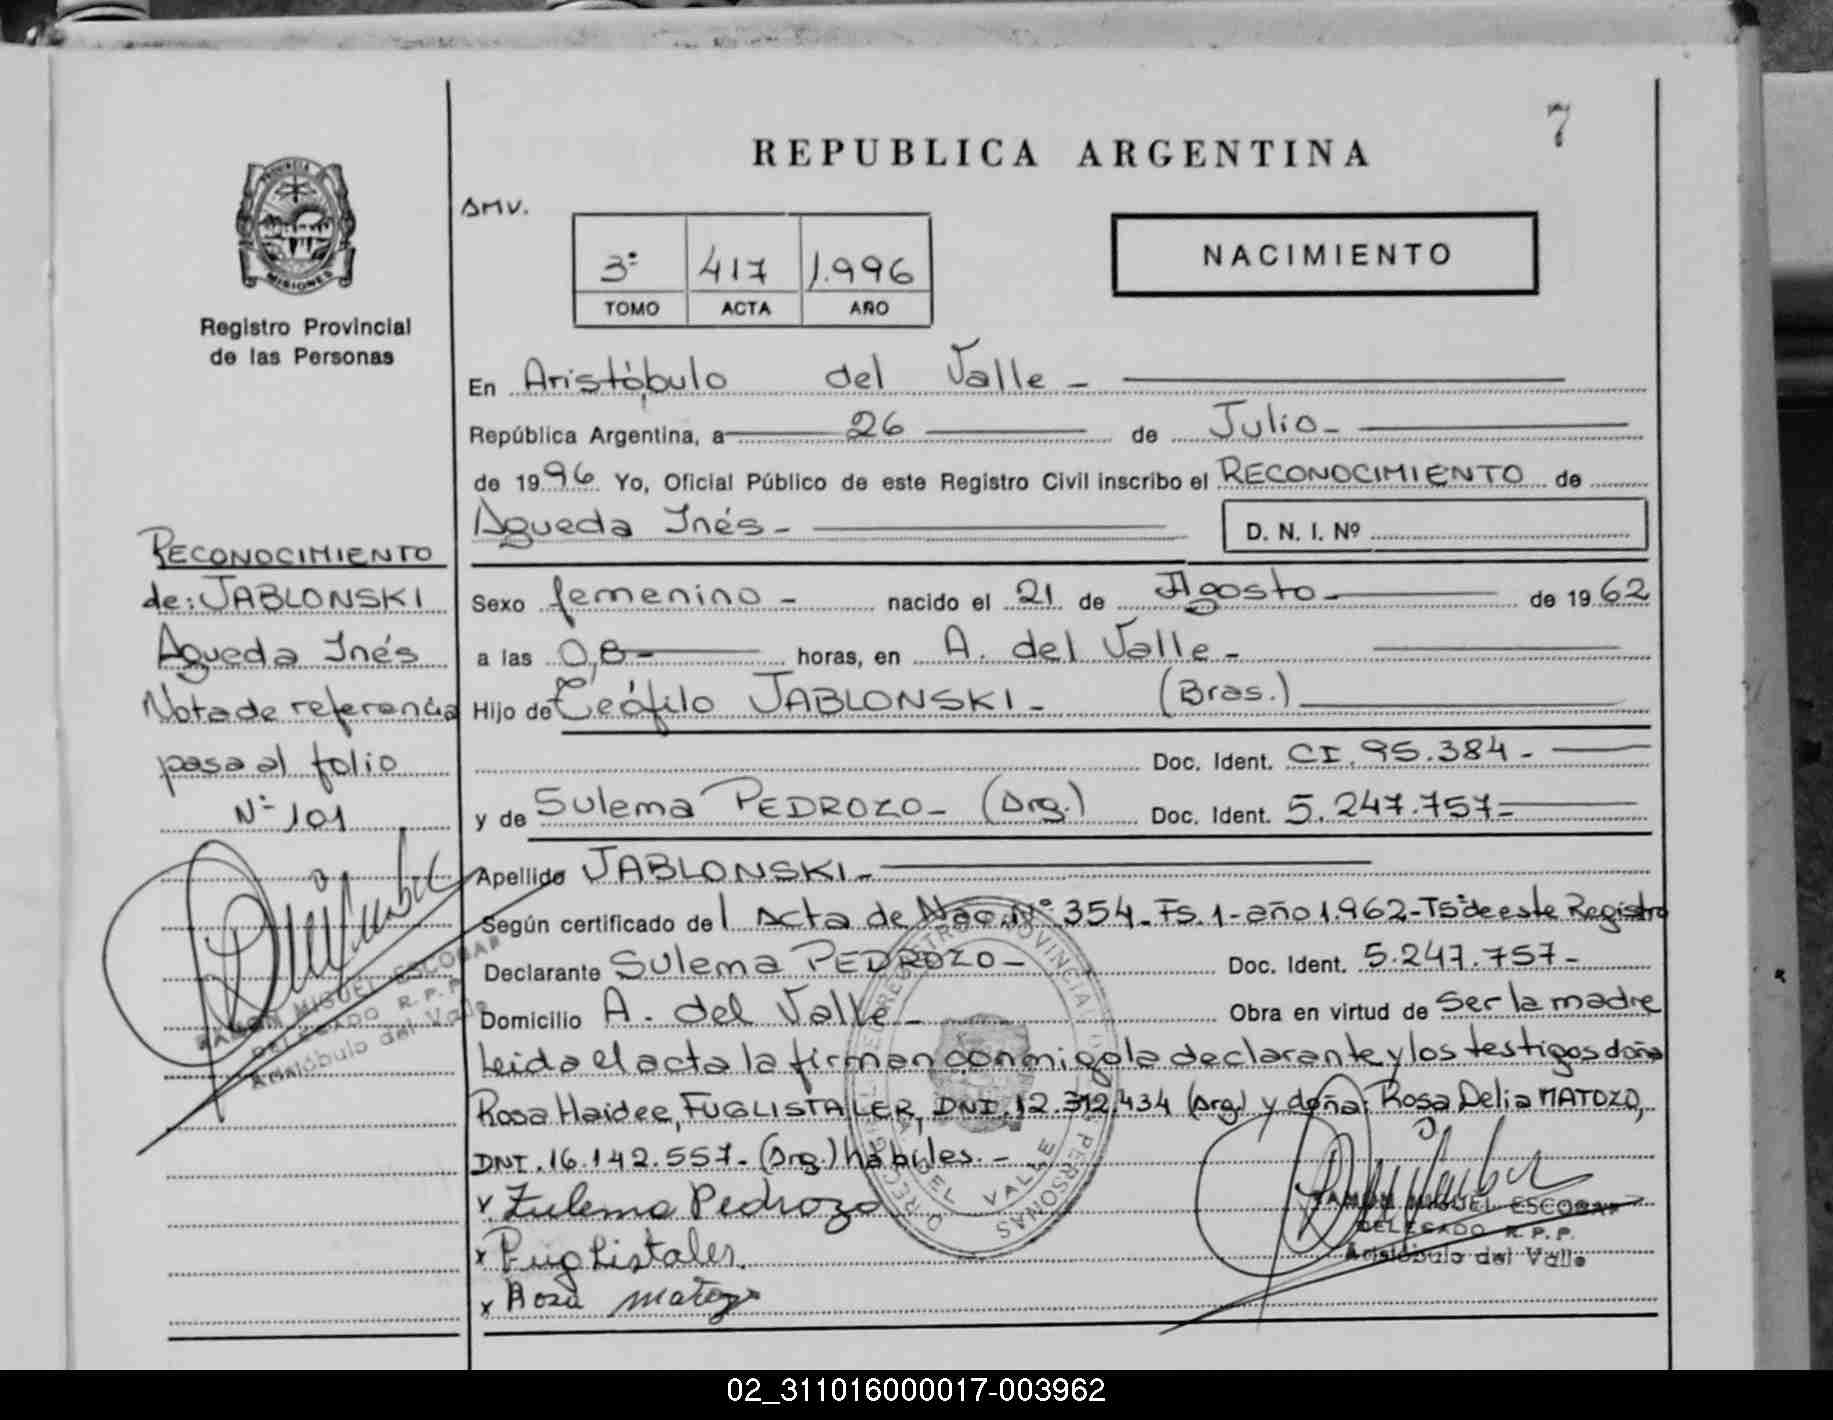 7
REPUBLICA ARGENTINA
PROVINCIA DE
MISIONES
Registro Provincial
de las Personas
AMV.
3º 417 1.996
TOMO ACTA AÑO
NACIMIENTO
En Aristóbulo del Valle -
República Argentina, a 26 de Julio -
de 1996 Yo, Oficial Público de este Registro Civil inscribo el RECONOCIMIENTO de
Agueda Inés -
D. N. I. Nº
Sexo femenino - nacido el 21 de Agosto - de 1962
a las 0,8 - horas, en A. del Valle -
Hijo de Teófilo JABLONSKI - (Bras.)
Doc. Ident. CI. 95.384 -
y de Sulema PEDROZO - (Arg.) Doc. Ident. 5.247.757 -
Apellido JABLONSKI -
Según certificado del Acta de Nac. Nº 354 - Fs. 1 - año 1.962 - T5º de este Registro
Declarante Sulema PEDROZO - Doc. Ident. 5.247.757 -
Domicilio A. del Valle - Obra en virtud de Ser la madre
Leida el acta la firman conmigo la declarante y los testigos doña
Rosa Haidee, FUGLISTALER, DNI. 12.312.434 (Arg.) y doña: Rosa Delia MATOZO,
DNI. 16.142.557 - (Arg.) hábiles. -
x Zulema Pedrozo
x Fuglistaler.
x Rosa matozo
RAMON MIGUEL ESCOBAR
DELEGADO R. P. P.
Aristóbulo del Valle
RECONOCIMIENTO
de: JABLONSKI
Agueda Inés
Nota de referencia
pasa al folio
Nº 101
RAMON MIGUEL ESCOBAR
DELEGADO R. P. P.
Aristóbulo del Valle
02_311016000017-003962